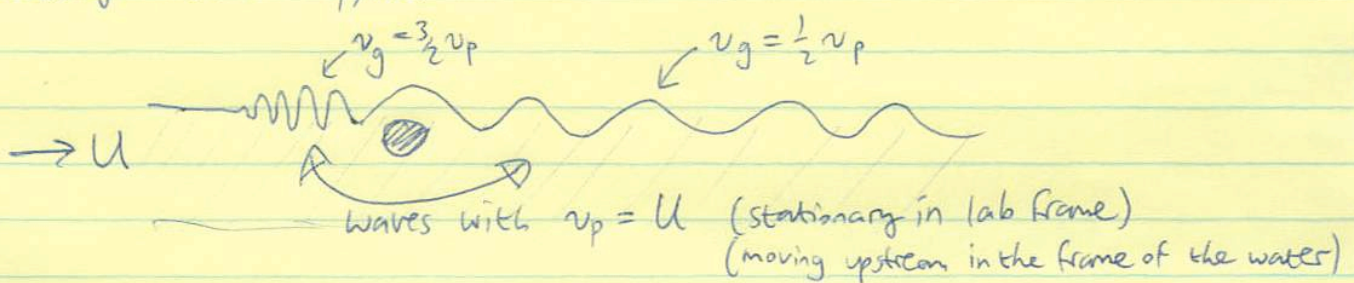 v_g = 3/2 v_p
v_g = 1/2 v_p
→ U
waves with v_p = U (stationary in lab frame)
(moving upstream in the frame of the water)